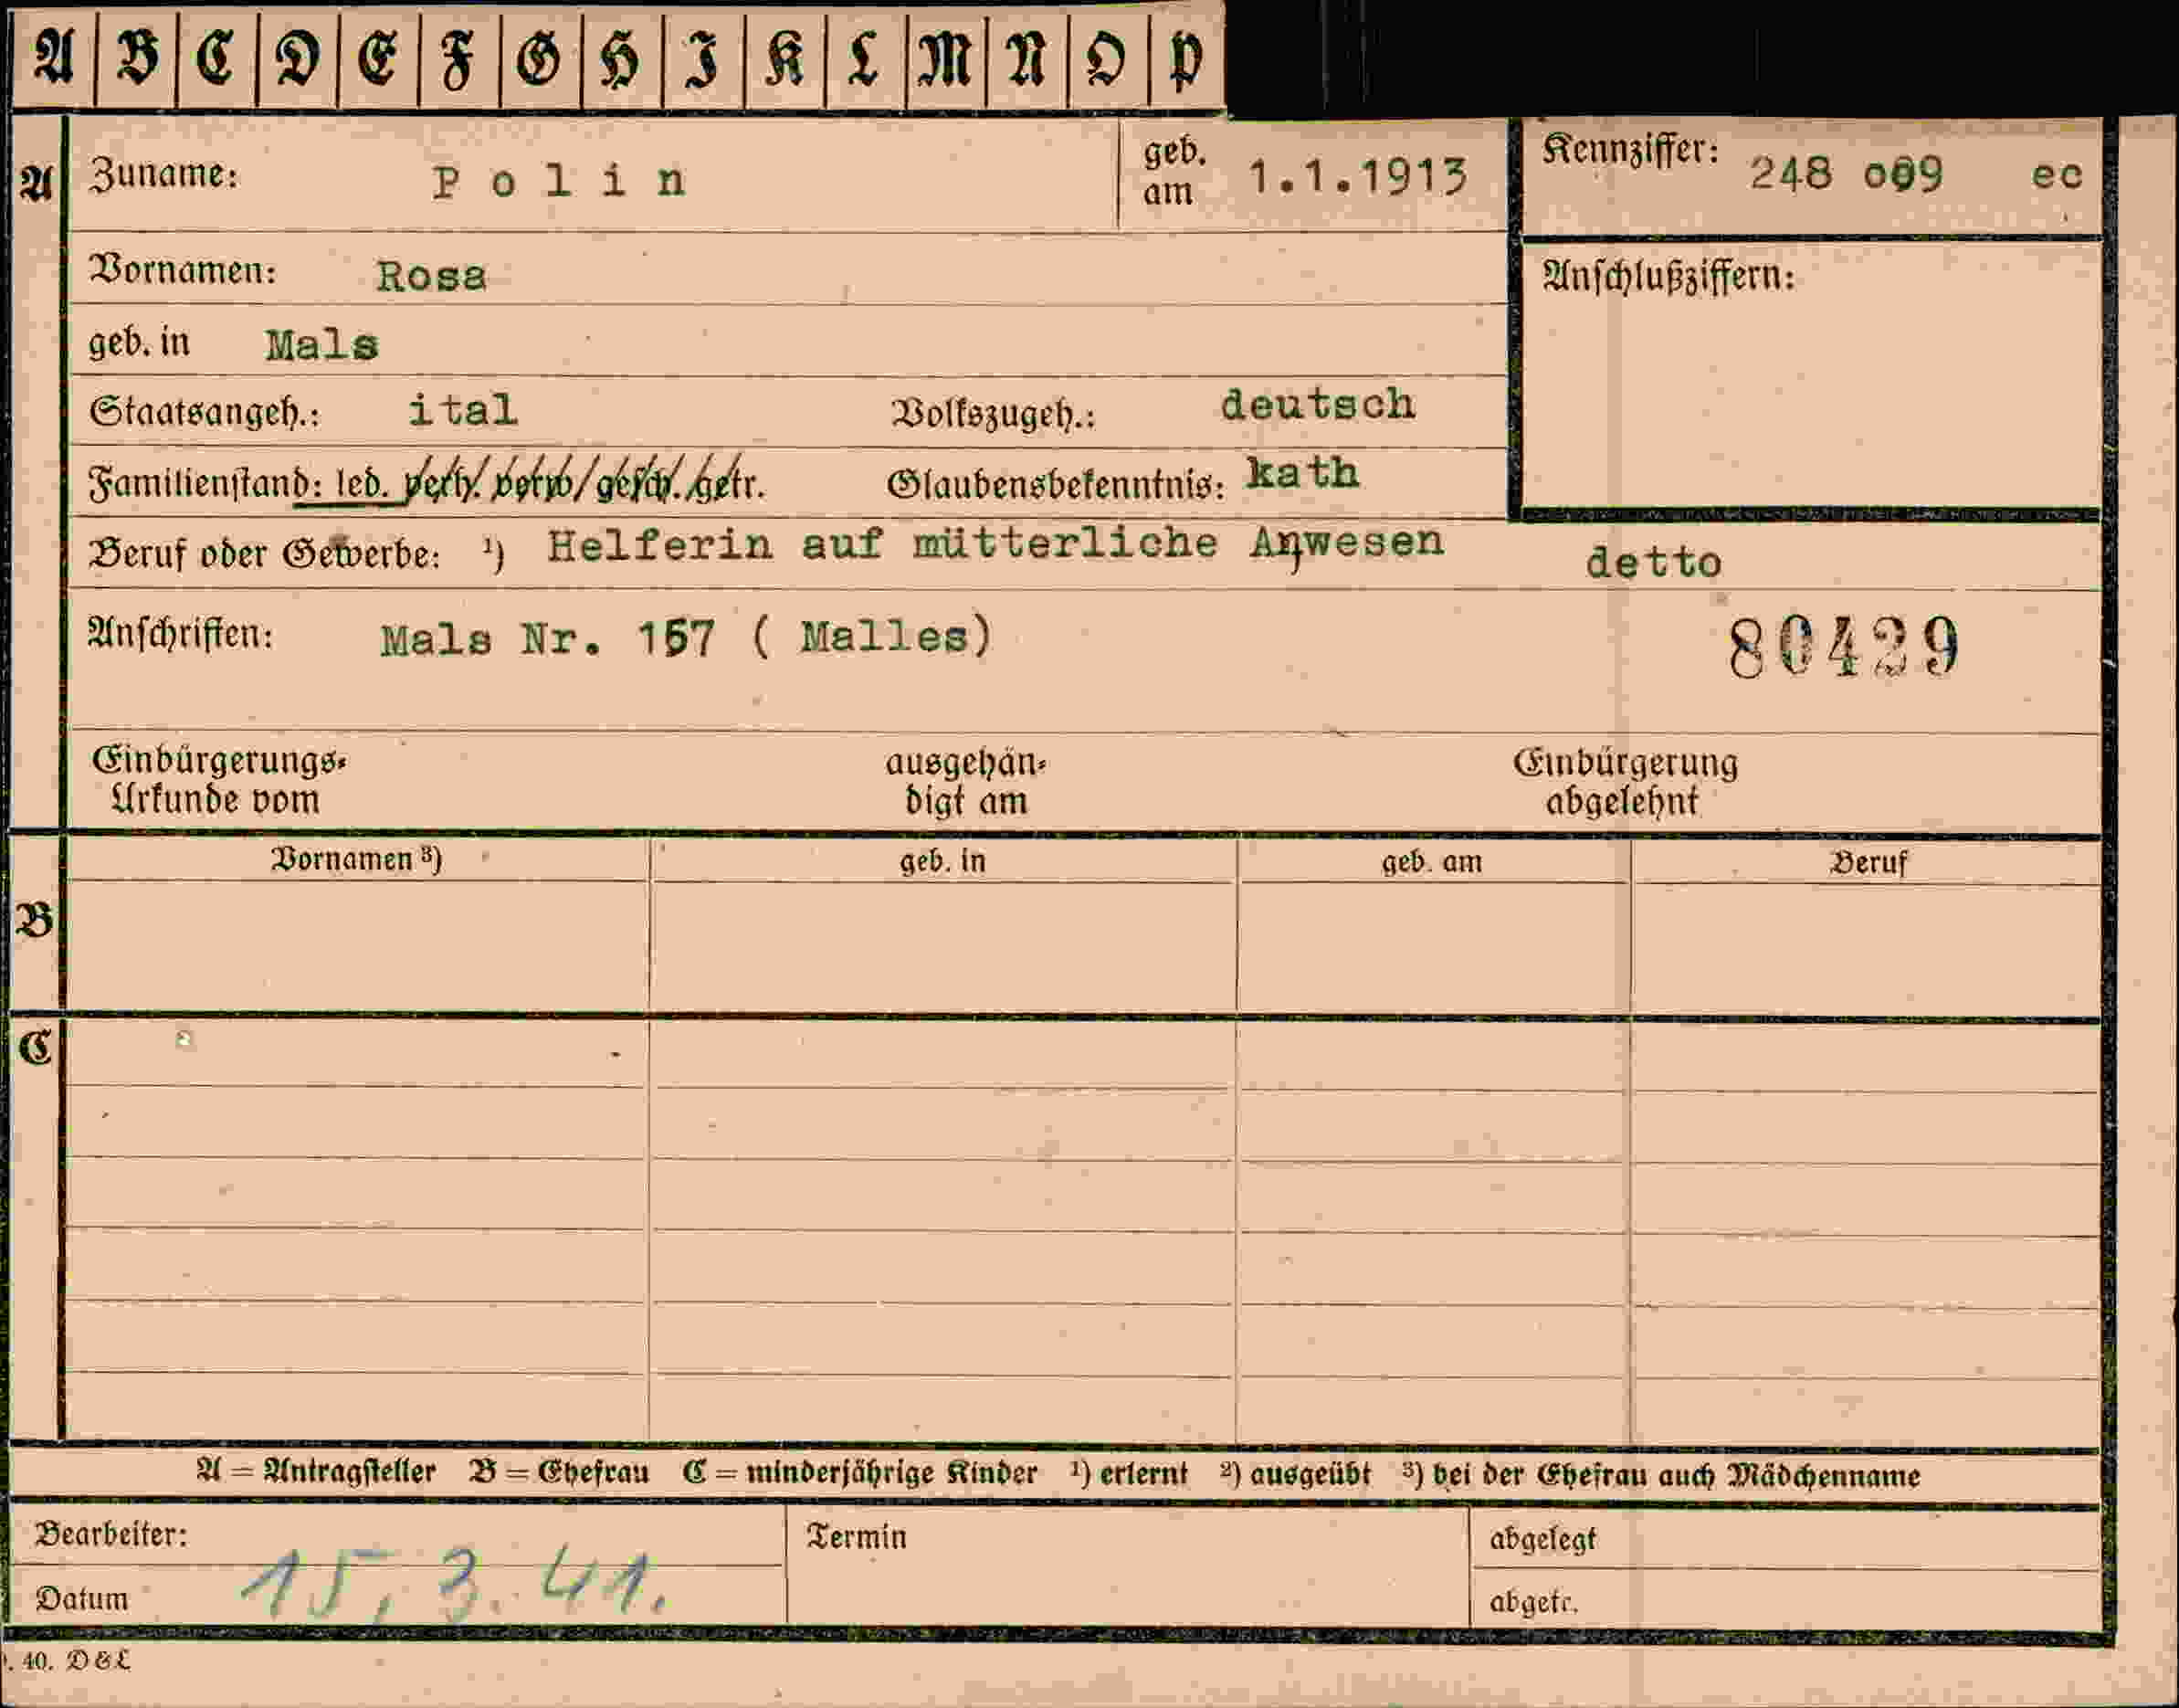 A B C D E F G H I K L M N O P
A Zuname: Polin geb. am 1.1.1913 Kennziffer: 248 009 ec
Vornamen: Rosa Anschlußziffern:
geb. in Mals
Staatsangeh.: ital Volkszugeh.: deutsch
Familienstand: led. verh. verw. gesch. getr. Glaubensbekenntnis: kath
Beruf oder Gewerbe: ¹) Helferin auf mütterliche Anwesen detto
Anschriften: Mals Nr. 157 ( Malles) 80429
Einbürgerungs- ausgehän- Einbürgerung
Urkunde vom digt am abgelehnt
Vornamen ³) geb. in geb. am Beruf
B
C
A = Antragsteller B = Ehefrau C = minderjährige Kinder ¹) erlernt ²) ausgeübt ³) bei der Ehefrau auch Mädchenname
Bearbeiter: Termin abgelegt
Datum 15.3.41. abgetr.
. 40. D&L